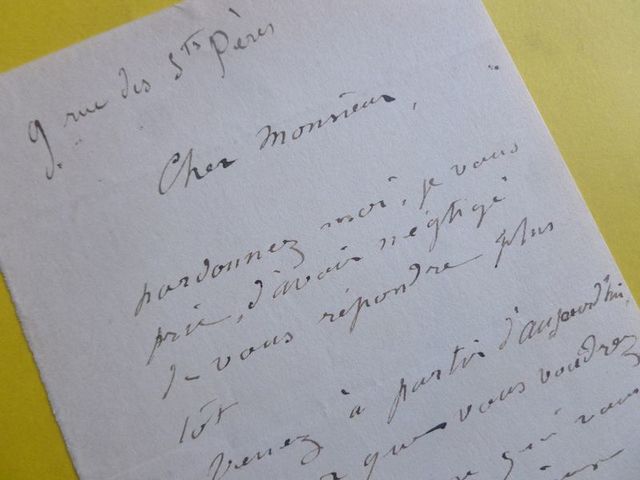 9 rue des Sts Pères
Cher Monsieur,
pardonnez moi, je vous
prie, d'avoir négligé
de vous répondre plus
tôt
Venez à partir d'aujourd'hui,
que vous voudrez
qui vous